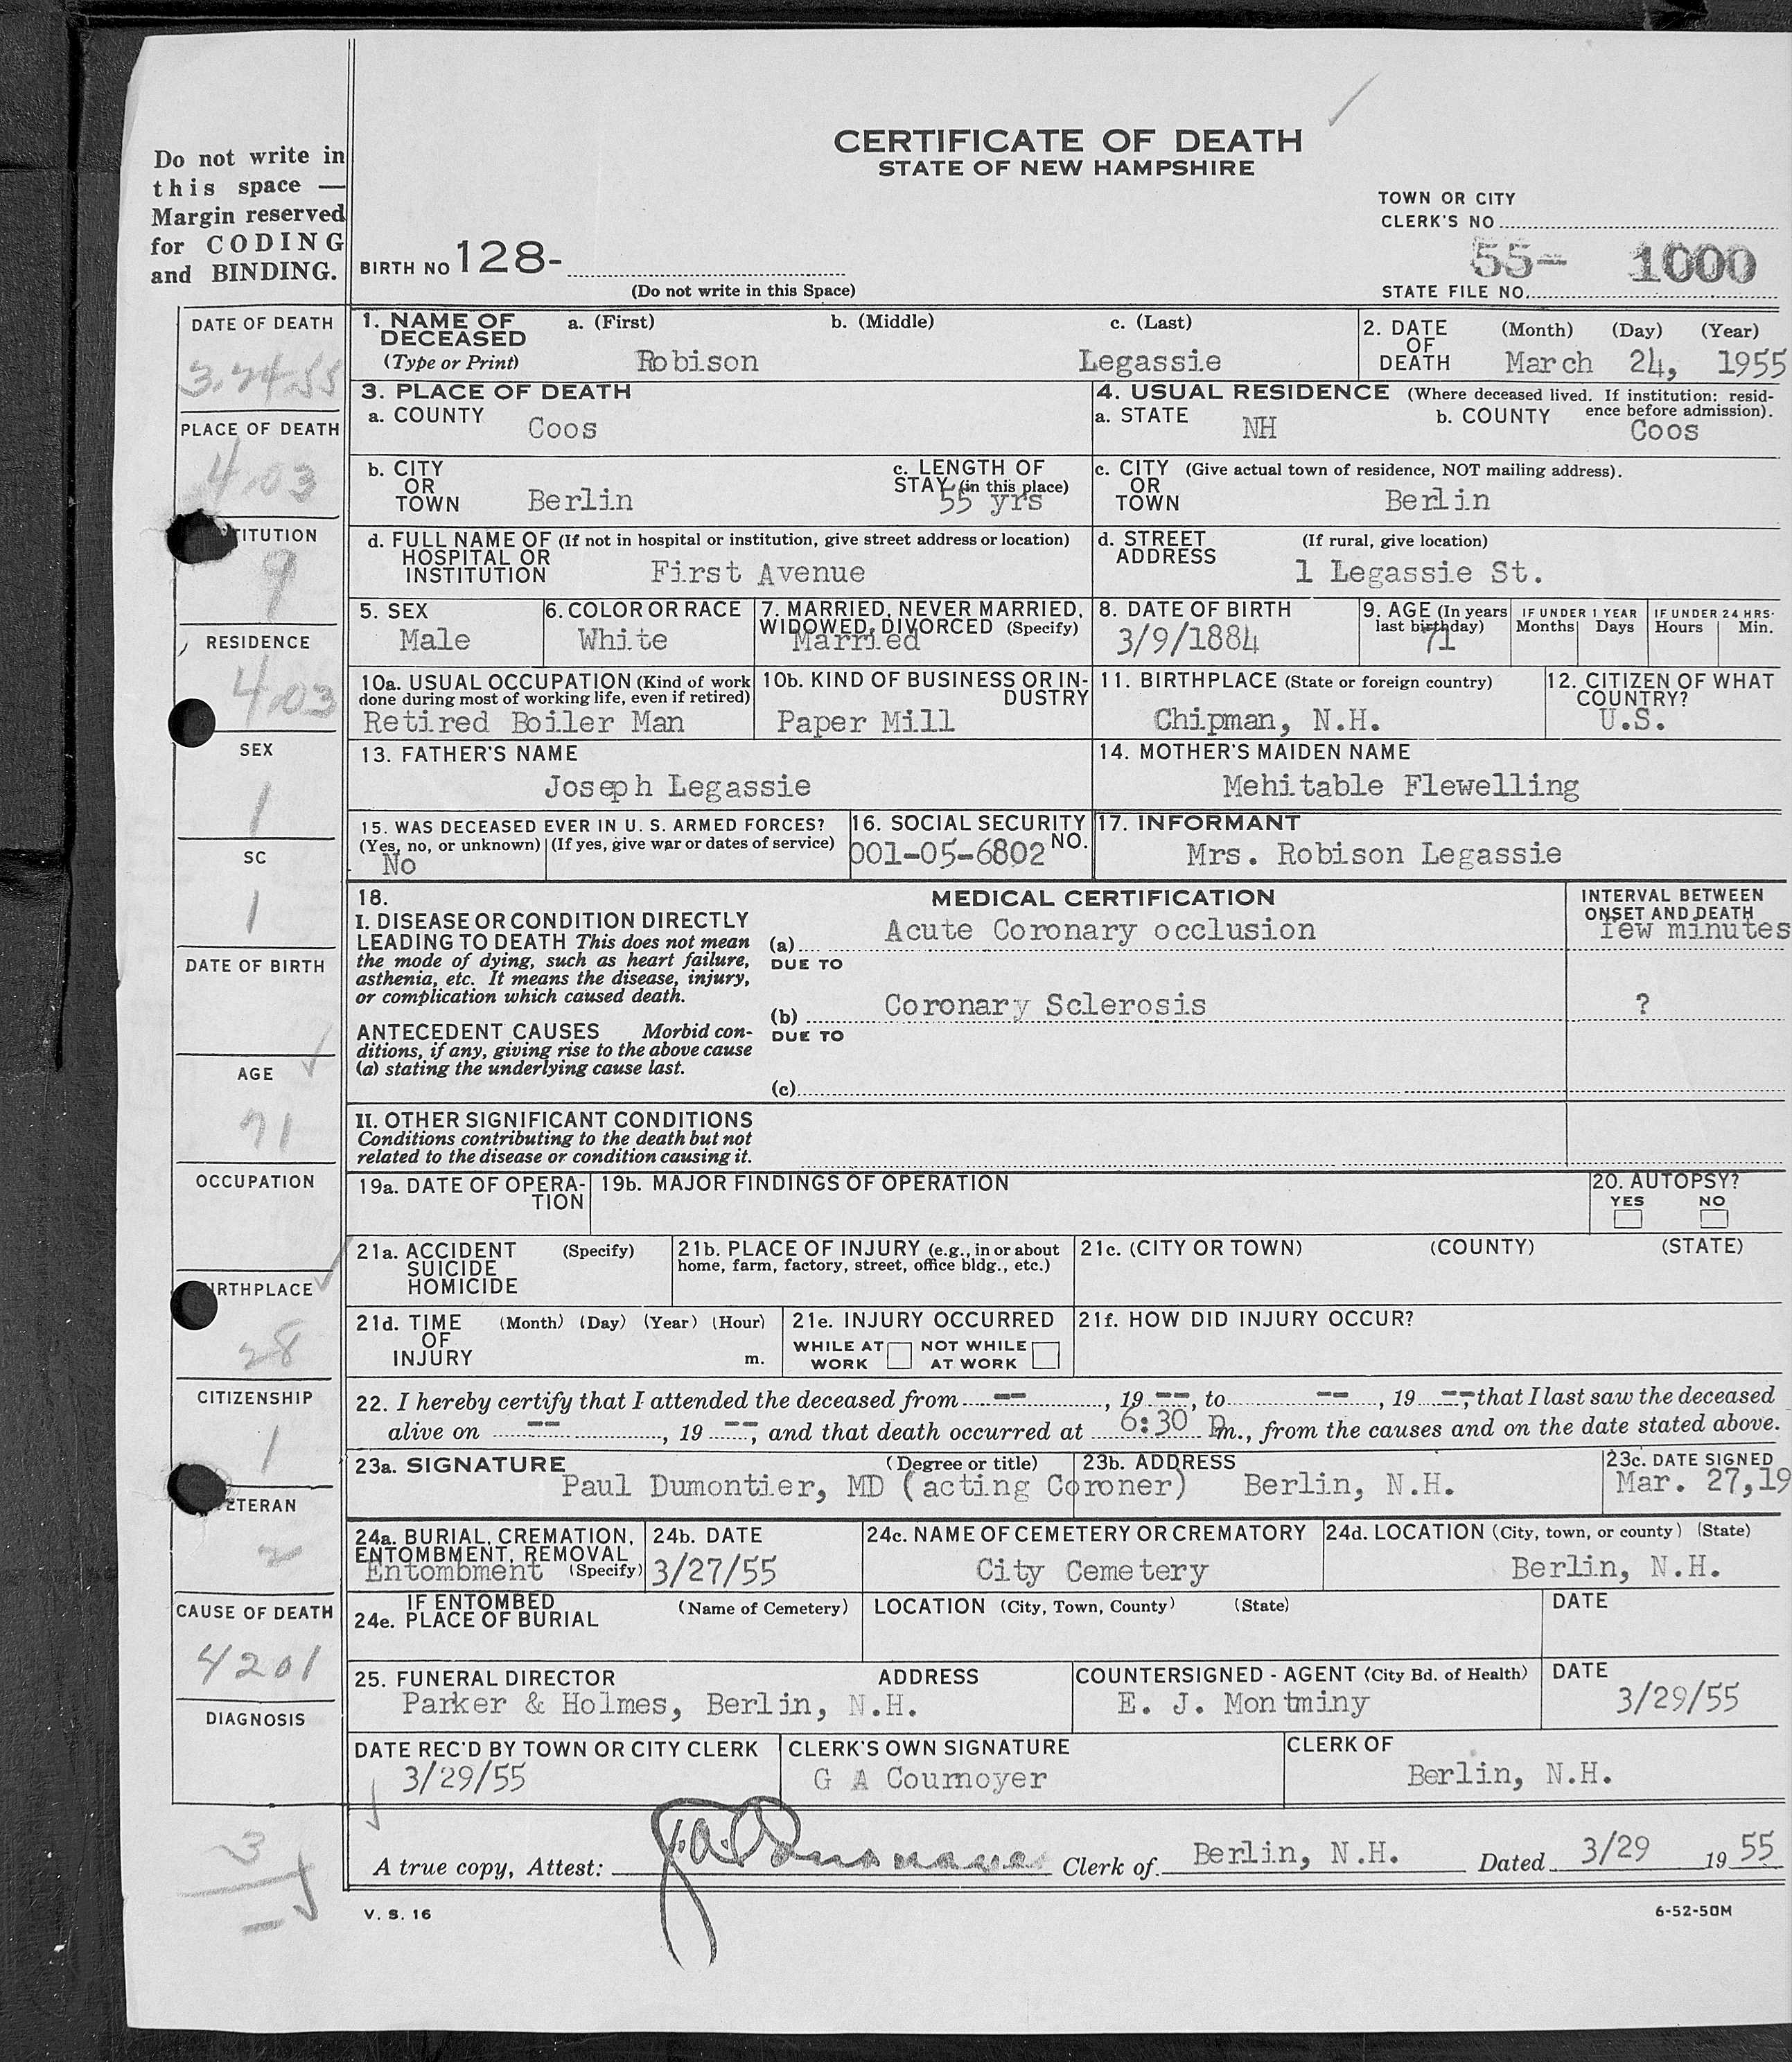 CERTIFICATE OF DEATH
STATE OF NEW HAMPSHIRE
Do not write in
this space —
Margin reserved
for CODING
and BINDING.
TOWN OR CITY
CLERK'S NO
BIRTH NO 128-
(Do not write in this Space)
55- 1000
STATE FILE NO.
DATE OF DEATH
3.24.55
1. NAME OF DECEASED (Type or Print) a. (First) b. (Middle) c. (Last)
Robison Legassie
2. DATE OF DEATH (Month) (Day) (Year)
March 24, 1955
PLACE OF DEATH
4.03
3. PLACE OF DEATH
a. COUNTY Coos
4. USUAL RESIDENCE (Where deceased lived. If institution: residence before admission).
a. STATE NH b. COUNTY Coos
b. CITY OR TOWN Berlin
c. LENGTH OF STAY (in this place) 55 yrs
c. CITY OR TOWN (Give actual town of residence, NOT mailing address).
Berlin
TITUTION
9
d. FULL NAME OF HOSPITAL OR INSTITUTION (If not in hospital or institution, give street address or location)
First Avenue
d. STREET ADDRESS (If rural, give location)
1 Legassie St.
RESIDENCE
4.03
5. SEX
Male
6. COLOR OR RACE
White
7. MARRIED, NEVER MARRIED, WIDOWED, DIVORCED (Specify)
Married
8. DATE OF BIRTH
3/9/1884
9. AGE (In years last birthday)
71
IF UNDER 1 YEAR
Months Days
IF UNDER 24 HRS.
Hours Min.
10a. USUAL OCCUPATION (Kind of work done during most of working life, even if retired)
Retired Boiler Man
10b. KIND OF BUSINESS OR INDUSTRY
Paper Mill
11. BIRTHPLACE (State or foreign country)
Chipman, N.H.
12. CITIZEN OF WHAT COUNTRY?
U.S.
SEX
1
13. FATHER'S NAME
Joseph Legassie
14. MOTHER'S MAIDEN NAME
Mehitable Flewelling
SC
1
15. WAS DECEASED EVER IN U. S. ARMED FORCES?
(Yes, no, or unknown) (If yes, give war or dates of service)
No
16. SOCIAL SECURITY NO.
001-05-6802
17. INFORMANT
Mrs. Robison Legassie
DATE OF BIRTH
18.
MEDICAL CERTIFICATION
INTERVAL BETWEEN ONSET AND DEATH
I. DISEASE OR CONDITION DIRECTLY
LEADING TO DEATH This does not mean
the mode of dying, such as heart failure,
asthenia, etc. It means the disease, injury,
or complication which caused death.
(a) Acute Coronary occlusion few minutes
DUE TO
(b) Coronary Sclerosis ?
DUE TO
ANTECEDENT CAUSES Morbid con-
ditions, if any, giving rise to the above cause
(a) stating the underlying cause last.
(c)
AGE
71
II. OTHER SIGNIFICANT CONDITIONS
Conditions contributing to the death but not
related to the disease or condition causing it.
OCCUPATION
19a. DATE OF OPERATION
19b. MAJOR FINDINGS OF OPERATION
20. AUTOPSY?
YES NO
21a. ACCIDENT SUICIDE HOMICIDE (Specify)
21b. PLACE OF INJURY (e.g., in or about home, farm, factory, street, office bldg., etc.)
21c. (CITY OR TOWN) (COUNTY) (STATE)
RTHPLACE
28
21d. TIME OF INJURY (Month) (Day) (Year) (Hour) m.
21e. INJURY OCCURRED
WHILE AT WORK NOT WHILE AT WORK
21f. HOW DID INJURY OCCUR?
CITIZENSHIP
1
22. I hereby certify that I attended the deceased from -- , 19 -- , to -- , 19 -- , that I last saw the deceased
alive on -- , 19 -- , and that death occurred at 6:30 P m., from the causes and on the date stated above.
23a. SIGNATURE (Degree or title)
Paul Dumontier, MD (acting Coroner)
23b. ADDRESS
Berlin, N.H.
23c. DATE SIGNED
Mar. 27,19
ETERAN
2
24a. BURIAL, CREMATION, ENTOMBMENT, REMOVAL (Specify)
Entombment
24b. DATE
3/27/55
24c. NAME OF CEMETERY OR CREMATORY
City Cemetery
24d. LOCATION (City, town, or county) (State)
Berlin, N.H.
CAUSE OF DEATH
4201
24e. IF ENTOMBED PLACE OF BURIAL (Name of Cemetery)
LOCATION (City, Town, County) (State)
DATE
25. FUNERAL DIRECTOR ADDRESS
Parker & Holmes, Berlin, N.H.
COUNTERSIGNED - AGENT (City Bd. of Health)
E. J. Montminy
DATE
3/29/55
DIAGNOSIS
DATE REC'D BY TOWN OR CITY CLERK
3/29/55
CLERK'S OWN SIGNATURE
G A Cournoyer
CLERK OF
Berlin, N.H.
3
A true copy, Attest: Clerk of Berlin, N.H. Dated 3/29 19 55
V. S. 16
6-52-50M